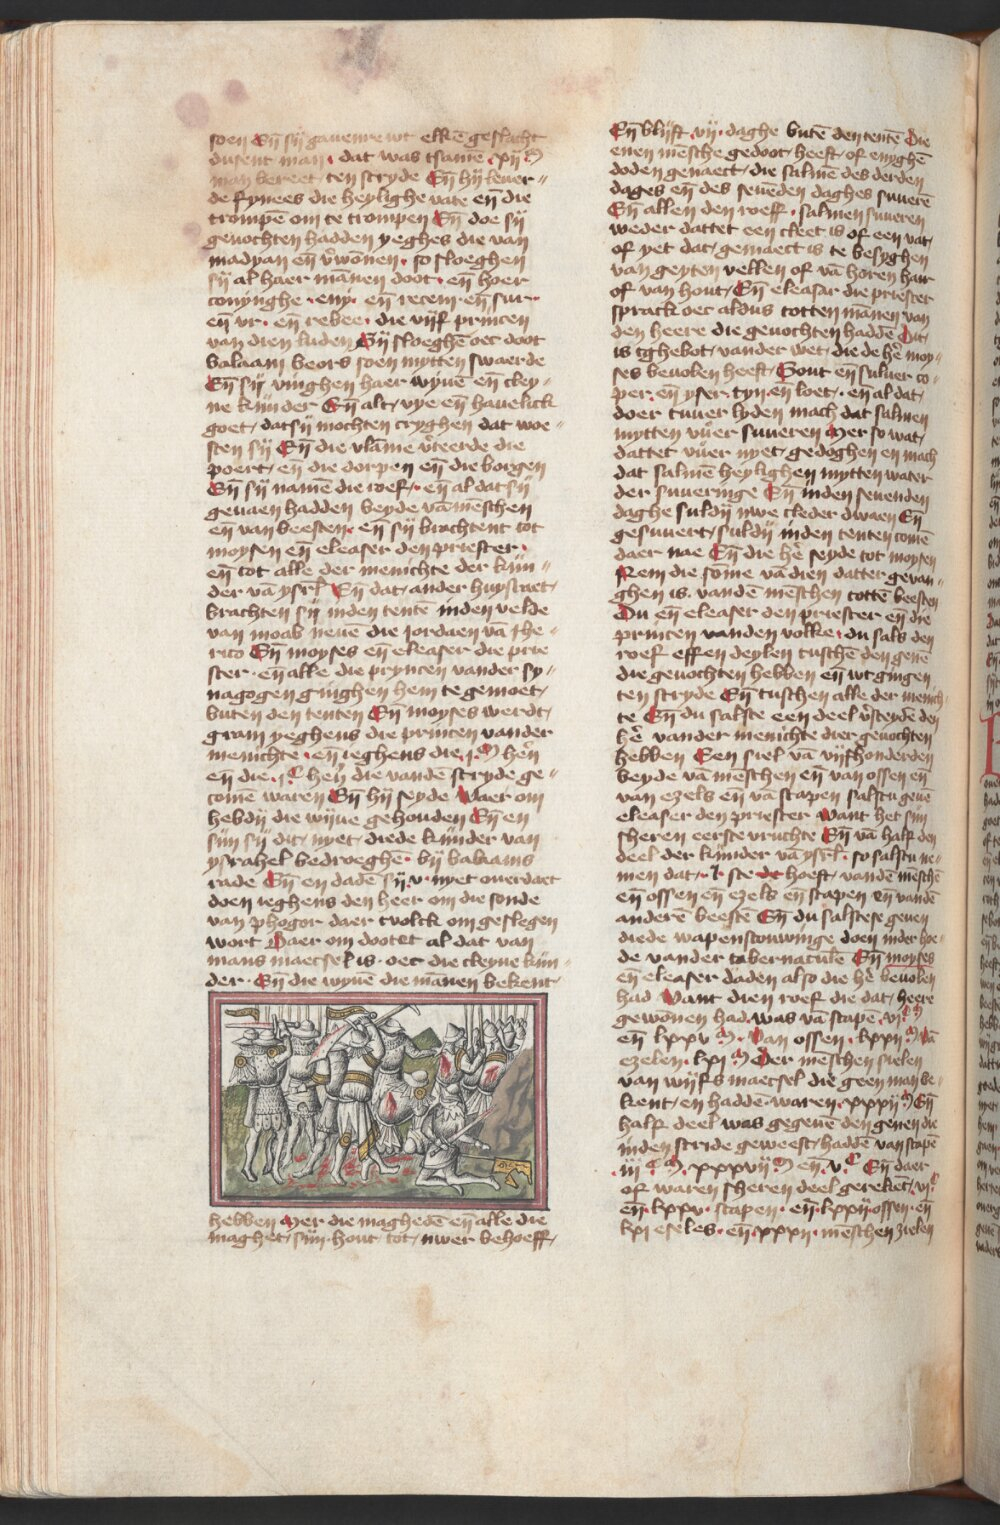 soen Eñ sij gauenre wt elkē geslacht
dusent man · dat was tsamē · xij m̄
man bereet ten stryde Eñ hij leuer〃
de fynees die heylighe vate eñ die
trompē om te trompen Eñ doe sij
geuochten hadden yeghes die van
madyan eñ v̄wonen · so sloeghen
sij al haer mānen doot · eñ hoer
conynghe · euy · eñ recem · eñ sur ·
eñ vr · eñ rebee · die vijf princen
van dien luden Sij sloeghē oec doot
balaam beors soen mytten swaerde
Eñ sij vinghen haer wyuē eñ cley〃
ne kijnder Eñ alt vye eñ hauelick
goet / datsij mochten cryghen dat woe〃
sten sij Eñ die vlāme v̄teerde die
poert / eñ die dorpen eñ die borgen
Eñ sij namē die roef · eñ al dat sij
geuaen hadden beyde vā mēschen
eñ van beesten · eñ sij brachtent tot
moysen eñ eleaser den priester ·
eñ tot alle der menichte der kijn〃
der vā ysrl̄ Eñ dat ander huysraet
brachten sij inden tentē inden velde
van moab neuē die Jordaen vā Jhe〃
rico Eñ moyses eñ eleaser die prie
ster · eñ alle die pryncen vander sy〃
nagogen ginghen hem te gemoet
buten den tenten Eñ moyses werdt
gram yeghens die princen vander
menichte · eñ ieghens die · j · m̄ hēn
eñ die · j · c̄ hēn die vandē stryde ge〃
comē waren Eñ hij seyde Waer om
hebdij die wijue gehouden Eñ en
sijn sij dit nyet diede kijnder van
ysrahel bedroeghē · bij balaams
rade Eñ en dadē sij v · nyet ouerdaet
doen ieghens den heer om die sonde
van phogor daer tvolck om geslegen
wort Daer om dootet al dat van
mans maecsel is · oec die cleyne kijn〃
der · Eñ die wyuē die mānen bekent
hebben Mer die maghedē eñ alle die
maghet sijn hout tot uwer behoeff
Eñ blijft vij · daghe butē den tentē Die
enen mēsche gedoot heeft / of enyghē
doden genaect / die salmē des derden
dages eñ des seuēden daghes suuerē
Eñ allen den roeff · salmen suueren
weder dattet een cleet is of een vat
of yet dat gemaect is te besyghen
van geyten vellen of vā horen haer
of van hout / Eñ eleasar die priester
sprack oec aldus totten mānen van
den heere die geuochten haddē Dit
is tghebot vander wet / die de hē moy〃
ses beuolen heeft / Gout eñ siluer co〃
per · eñ yser · tyn · eñ loet · eñ al dat
doer tvuer lyden mach dat salmen
mytten vuer suueren Mer so wat
dattet vuer nyet gedoghen en mach
dat salmē heylighen mytten water
der suueringe Eñ inden seuenden
daghe suldij uwe cleder dwaen Eñ
gesuuert suldij inden tenten comē
daer nae Eñ die hē seyde tot moysen
Nem die sōme vā dien datter gevan〃
ghen is · vandē mēschen tottē beesten
Du eñ eleaser den priester eñ die
princen vanden volke · du sals den
roef effen deylen tusschē den genē
die geuochten hebben eñ wtgingen
ten stryde Eñ tusschen alle der menich
te Eñ du salste een deel v̄sceydē den
hē vander menichte dier geuochten
hebben Een siel vā vijfhonderden
beyde vā mēschen eñ van ossen eñ
van ezels eñ vā scapen salstu geuē
eleaser den priester Want het sijn
sheren eerste vruchte Eñ vā half den
deel der kijnder vā ysrl̄ · so salstu ne〃
men dat · l · ste hoeft · vanden mēsche
eñ ossen eñ ezels eñ scapen eñ vandē
anderē beestē Eñ du salstese geuen
diede wapenscouwinge doen inder hoe〃
de vander tabernacule Eñ moyses
eñ eleaser daden also die hē beuolen
had Want dien roef die dat heere
gewonen had · was vā scapē · vj · c̄ m̄
eñ lxxv m̄ · Van ossen · lxxij m̄ vā
ezelen · lxj m̄ Der mēschen sielen
van wijfs maecsel die geen man be〃
kent en haddē · waren · xxxij m̄ Eñ
half deel was gegeuē den genen die
inden stride geweest haddē van scapē
· iij c̄ m̄ · xxxvij m̄ eñ · v · c̄ Eñ daer
of waren sheren deel gerekēt vj c̄
eñ · lxxv · scapen · eñ · lxxij · ossen · eñ
lxj eseles · eñ · xxxij · mēschen zielen